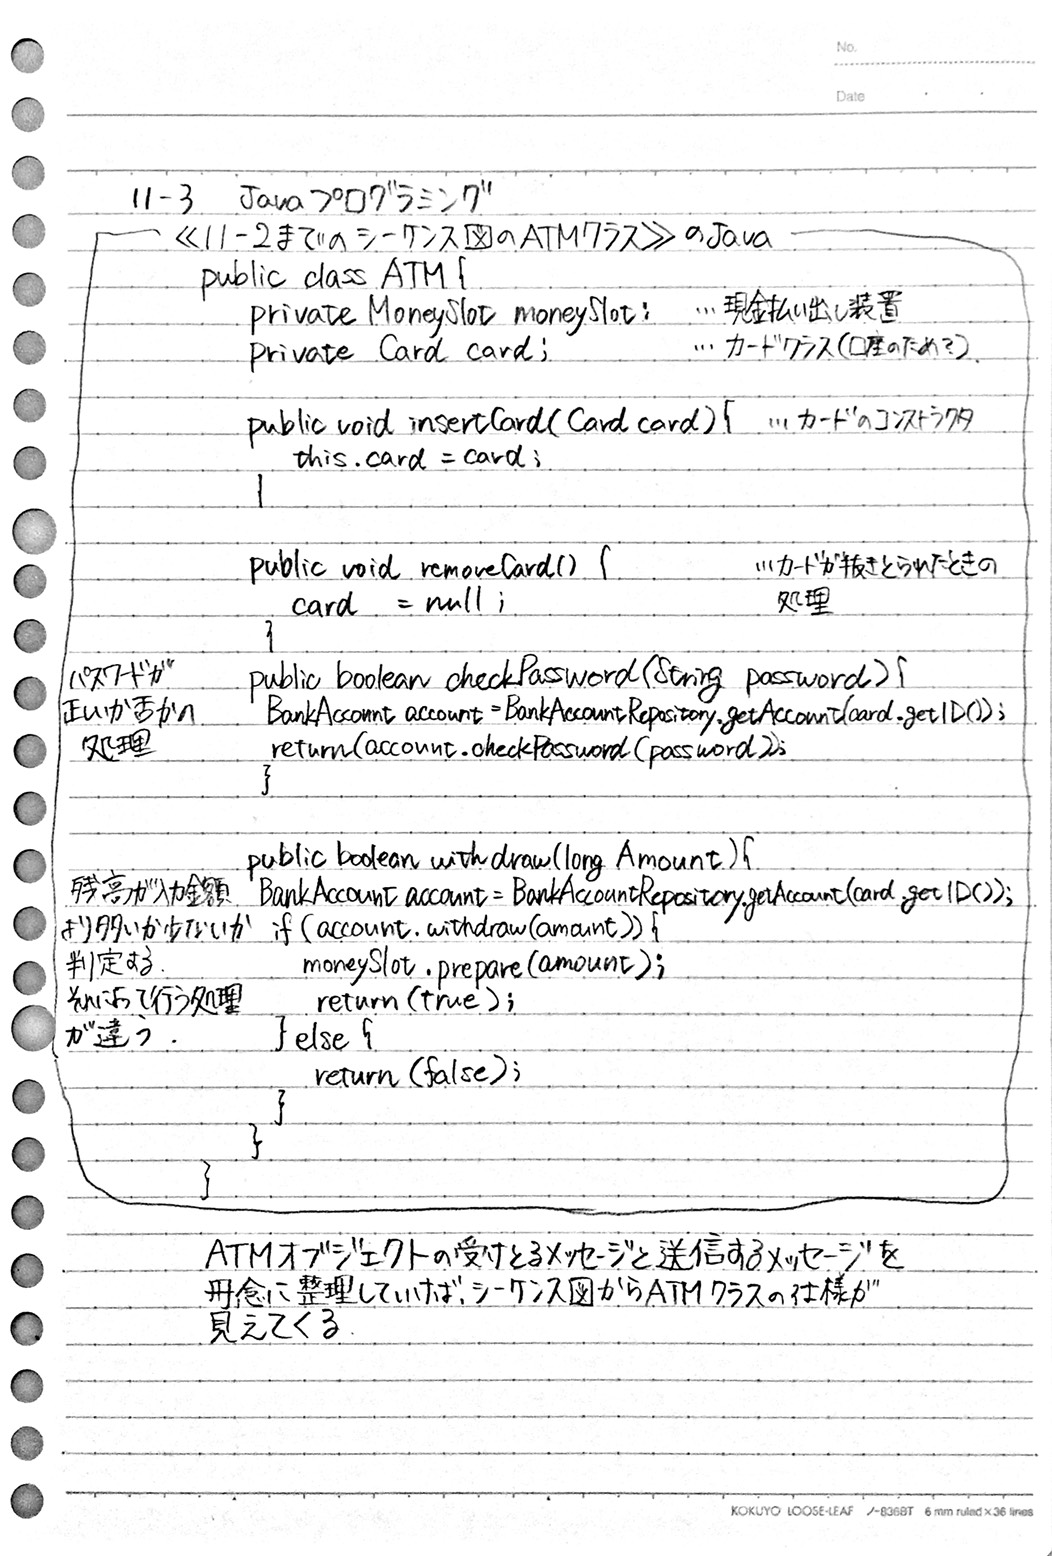 No.
Date
11-3 Javaプログラミング
≪11-2までのシーケンス図のATMクラス≫のJava
public class ATM {
private MoneySlot moneySlot; …現金払い出し装置
private Card card; …カードクラス(口座のため?).
public void insertCard(Card card){ …カードのコンストラクタ
this.card = card;
}
public void removeCard() { …カードが抜きとられたときの
card = null; 処理
}
パスワードが public boolean checkPassword(String password){
正いか否かの BankAccount account = BankAccountRepository.getAccount(card.getID());
処理 return(account.checkPassword(password));
}
public boolean withdraw(long Amount){
残高が入力金額 BankAccount account = BankAccountRepository.getAccount(card.getID());
より多いか少ないか if (account.withdraw(amount)) {
判定する. moneySlot.prepare(amount);
それによって行う処理 return(true);
が違う. } else {
return (false);
}
}
}
ATMオブジェクトの受けとるメッセージと送信するメッセージを
丹念に整理していけば、シーケンス図からATMクラスの仕様が
見えてくる.
KOKUYO LOOSE-LEAF ノ-836BT 6 mm ruled×36 lines